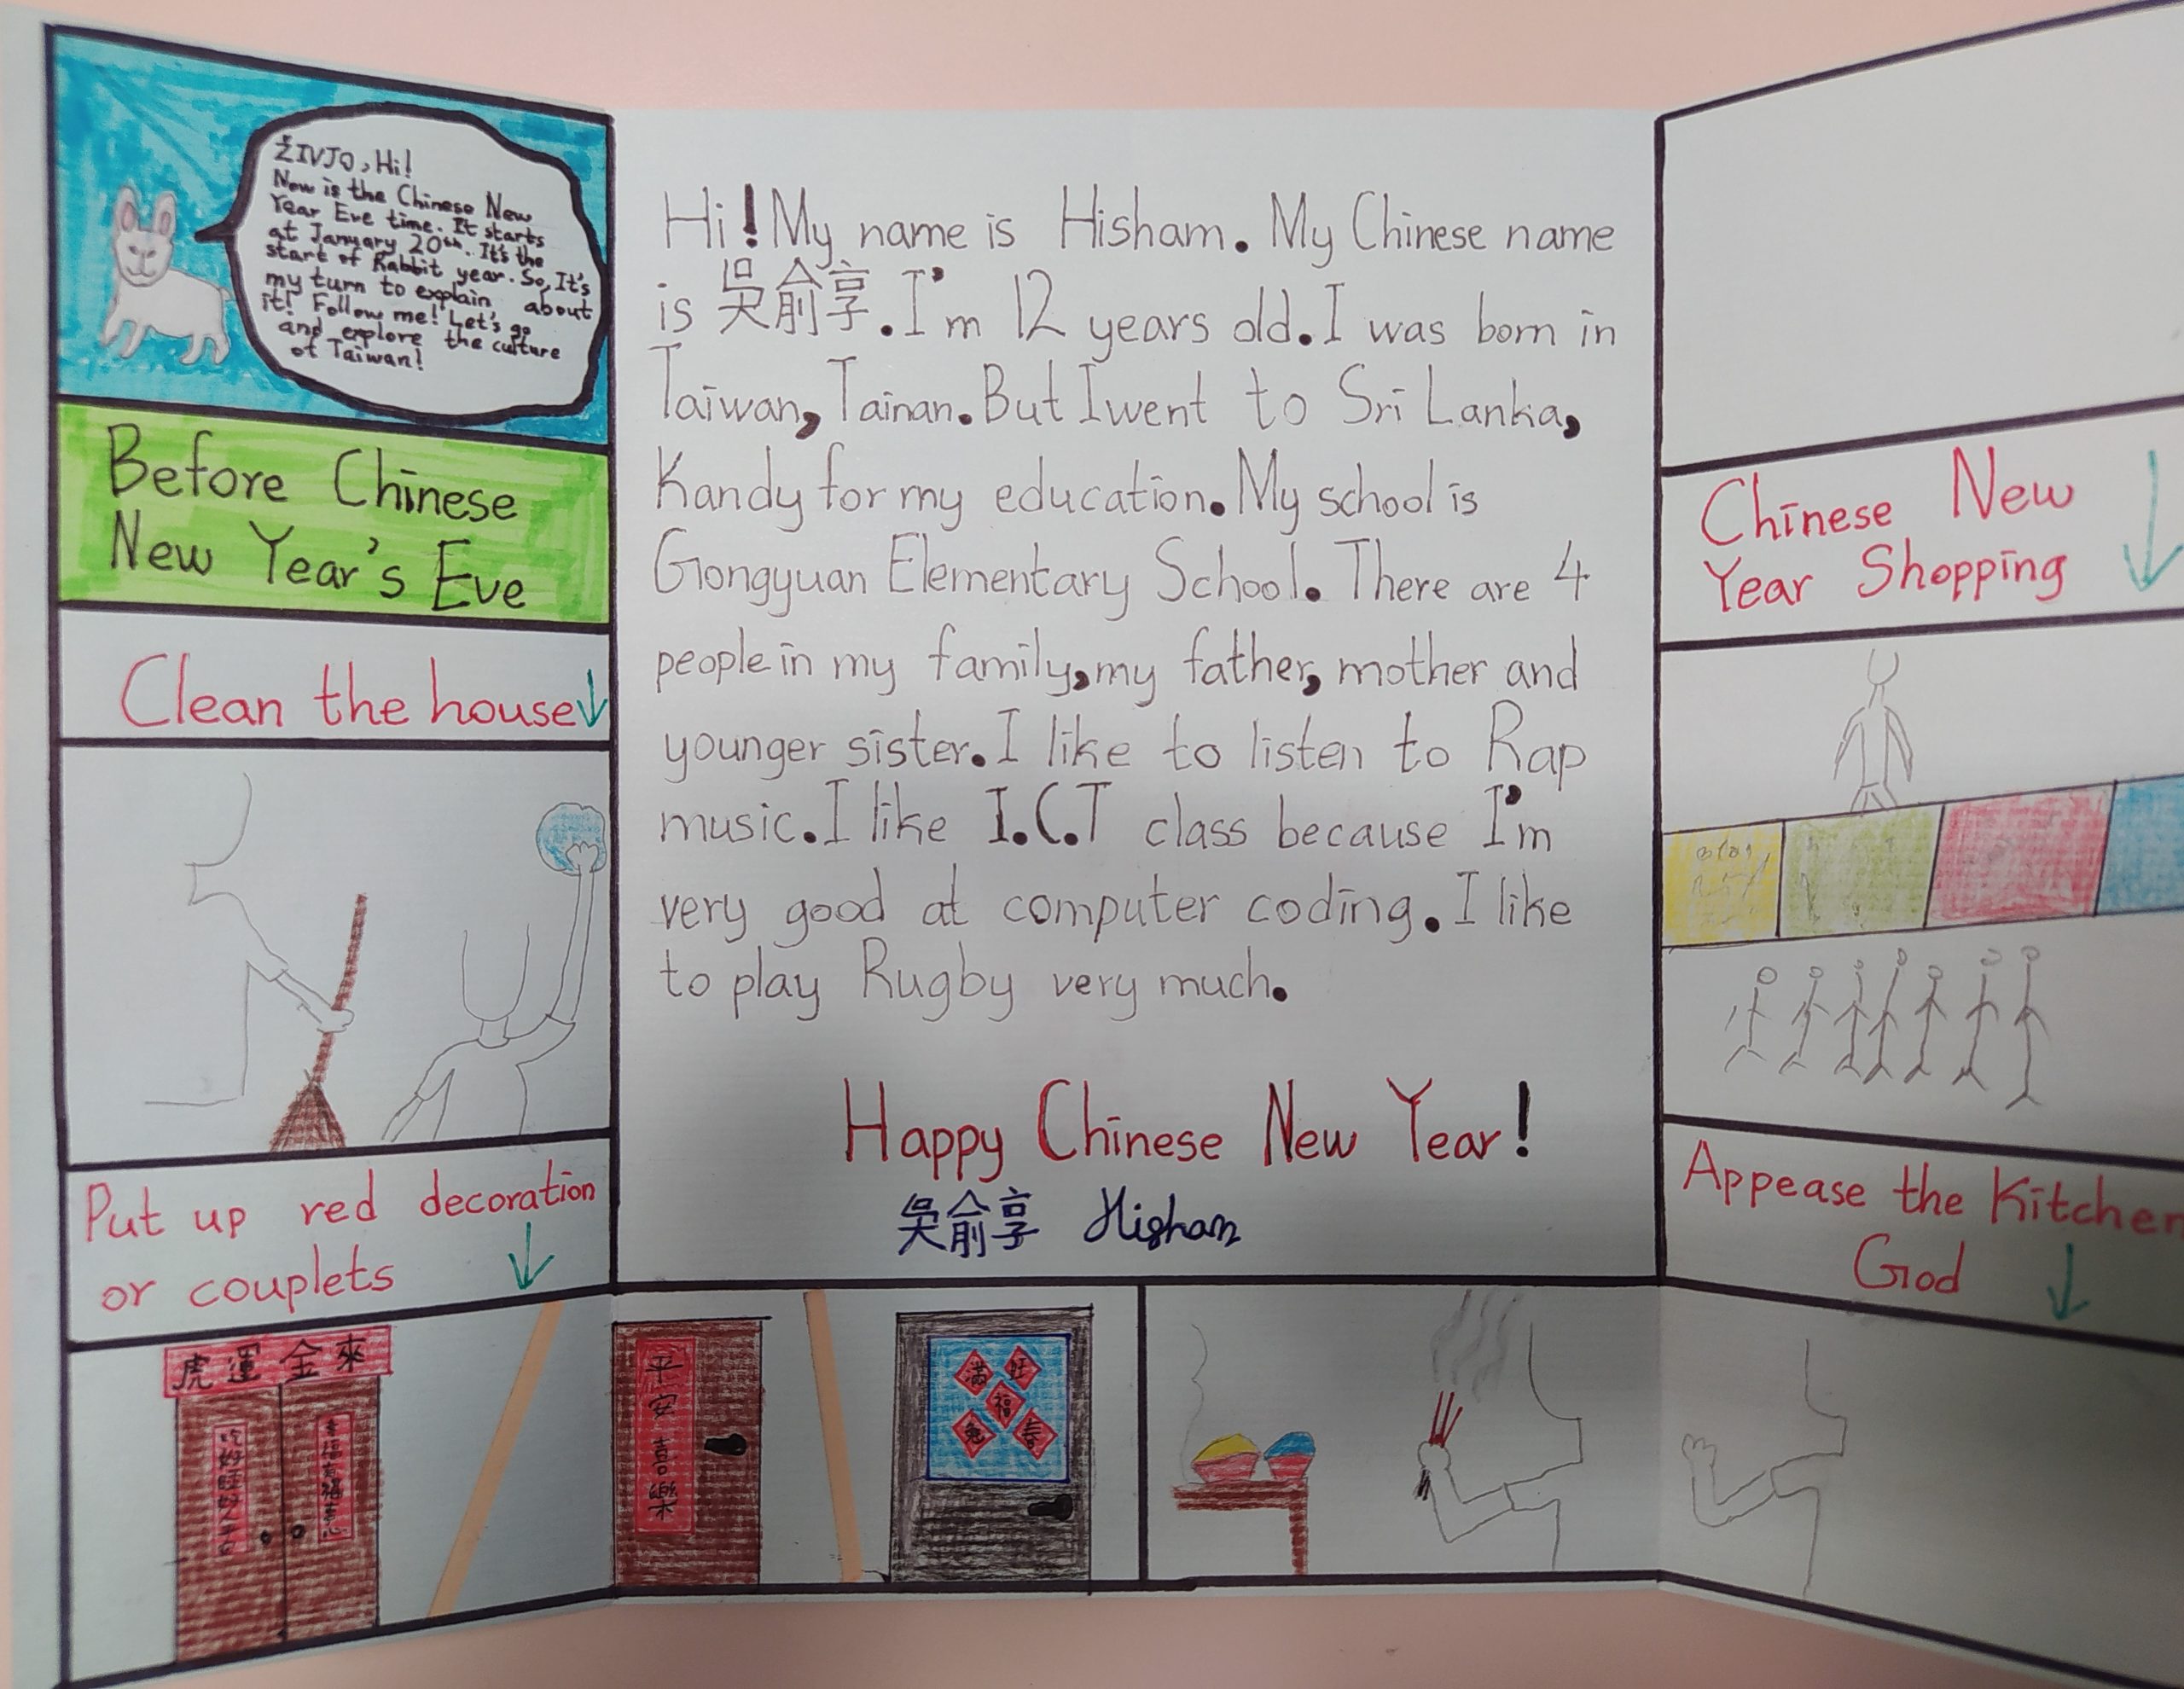 ŽIVJO, Hi!
Now is the Chinese New
Year Eve time. It starts
at January 20th. It's the
start of Rabbit year. So, It's
my turn to explain about
it! Follow me! Let's go
and explore the culture
of Taiwan!
Before Chinese
New Year's Eve
Clean the house
Put up red decoration
or couplets
虎運金來
幸福有福喜心
Hi! My name is Hisham. My Chinese name
is 吳俞享. I'm 12 years old. I was born in
Taiwan, Tainan. But I went to Sri Lanka,
Kandy for my education. My school is
Gongyuan Elementary School. There are 4
people in my family, my father, mother and
younger sister. I like to listen to Rap
music. I like I.C.T class because I'm
very good at computer coding. I like
to play Rugby very much.
Happy Chinese New Year!
吳俞享 Hisham
平安喜樂
滿 旺
福
兔 春
Chinese New
Year Shopping
Appease the Kitchen
God